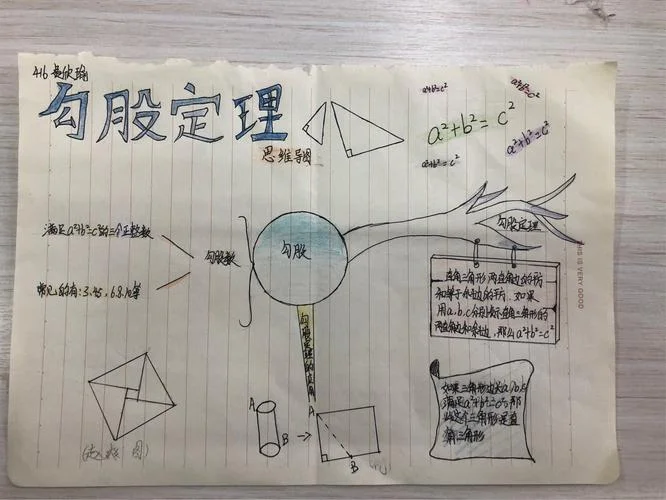 416
勾股定理
思维导图
a²+b²=c²
a²+b²=c²
a²+b²=c²
a²+b²=c²
a²+b²=c²
满足a²+b²=c²的三个正整数
勾股数
常见的有:3.4.5,6.8.10等
勾股
勾股定理
直角三角形两直角边的平方
和等于斜边的平方.如果
用a.b.c分别表示直角三角形的
两直角边和斜边,那么a²+b²=c²
THIS IS VERY GOOD
勾股定理的应用
如果三角形边长a,b,c
满足a²+b²=c²,那
么这个三角形是直
角三角形
A
B
A
B
(赵爽 图)